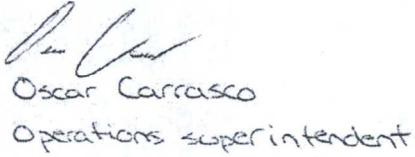 Oscar Carrasco
Operations superintendent